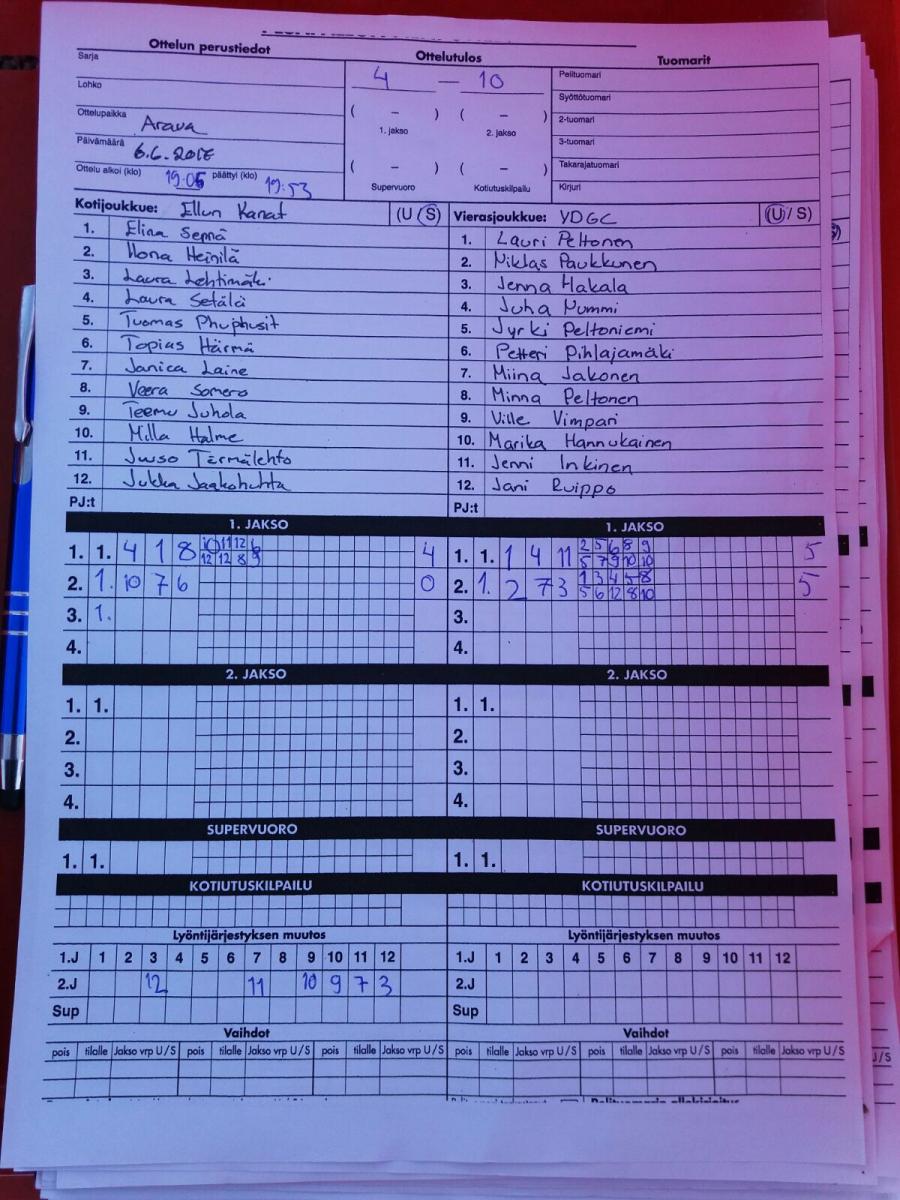 Ottelun perustiedot
Ottelutulos
Tuomarit
Sarja
Lohko
Ottelupaikka Arava
Päivämäärä 6.6.
Ottelu alkoi (klo) 19.05 päättyi (klo) 19:53
4 – 10
( – ) ( – )
1. jakso 2. jakso
( – ) ( – )
Supervuoro Kotiutuskilpailu
Pelituomari
Syöttötuomari
2-tuomari
3-tuomari
Takarajatuomari
Kirjuri
Kotijoukkue: Ellun Kanat (U/S)
1. Elina Seppä
2. Ilona Heinilä
3. Laura Lehtimäki
4. Laura Setälä
5. Tuomas Phuphusit
6. Topias Härmä
7. Janica Laine
8. Veera Somero
9. Teemu Juhola
10. Milla Halme
11. Juuso Tarmalehto
12. Jukka Jaakohuhta
PJ:t
Vierasjoukkue: YDGC (U/S)
1. Lauri Peltonen
2. Niklas Paukkunen
3. Jenna Hakala
4. Juha Nummi
5. Jyrki Peltoniemi
6. Petteri Pihlajamäki
7. Miina Jakonen
8. Minna Peltonen
9. Ville Vimpari
10. Marika Hannukainen
11. Jenni Inkinen
12. Jani Ruippo
PJ:t
1. JAKSO
1. 1. 4 1 8 10 11 12 6 4
12 12 8 9
2. 1. 10 7 6 0
3. 1.
4.
1. JAKSO
1. 1. 1 4 11 2 5 6 8 9 5
5 7 9 10 10
2. 1. 2 7 3 1 3 4 5 8 5
5 6 12 8 10
3.
4.
2. JAKSO
1. 1.
2.
3.
4.
2. JAKSO
1. 1.
2.
3.
4.
SUPERVUORO
1. 1.
SUPERVUORO
1. 1.
KOTIUTUSKILPAILU
KOTIUTUSKILPAILU
Lyöntijärjestyksen muutos
1.J 1 2 3 4 5 6 7 8 9 10 11 12
2.J 12 11 10 9 7 3
Sup
Lyöntijärjestyksen muutos
1.J 1 2 3 4 5 6 7 8 9 10 11 12
2.J
Sup
Vaihdot
pois tilalle Jakso vrp U/S pois tilalle Jakso vrp U/S pois tilalle Jakso vrp U/S
Vaihdot
pois tilalle Jakso vrp U/S pois tilalle Jakso vrp U/S pois tilalle Jakso vrp U/S